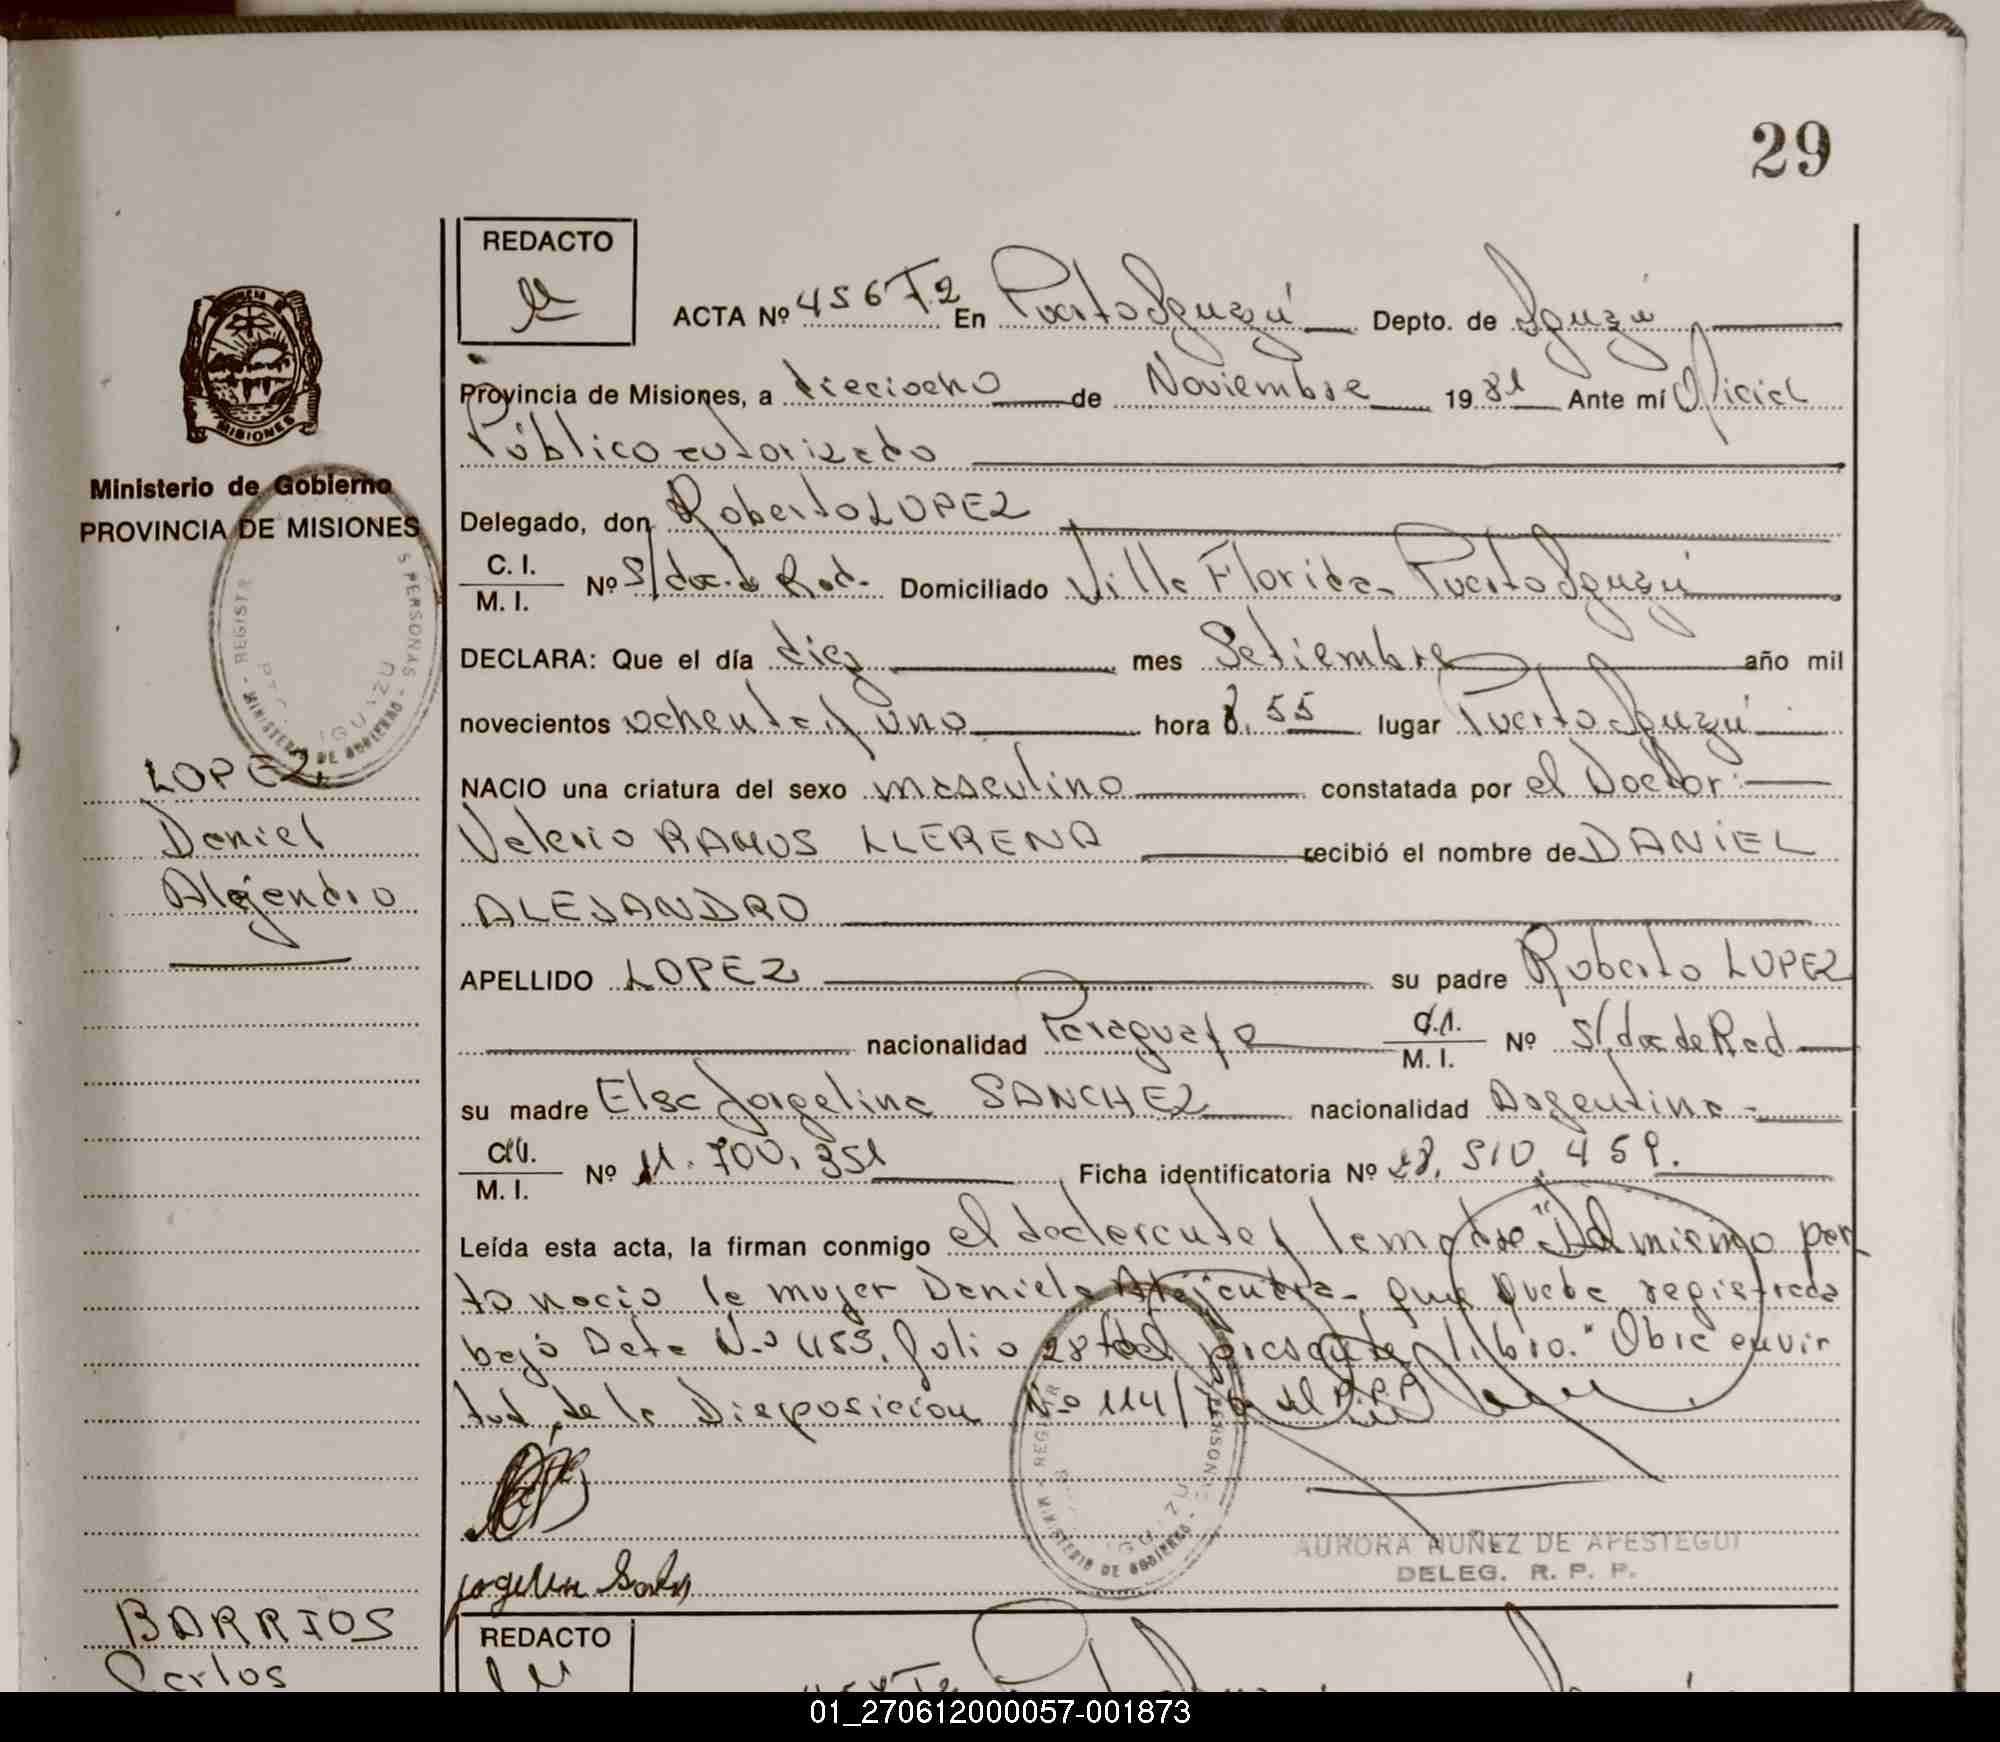 29
REDACTO
ACTA Nº 456 T2 En Puerto Iguazú Depto. de Iguazú
Provincia de Misiones, a dieciocho de Noviembre 1981 Ante mí Oficial
Público autorizado
Ministerio de Gobierno
PROVINCIA DE MISIONES
Delegado, don Roberto LOPEZ
C. I.
M. I. Nº S/doc. de Rad. Domiciliado Villa Florida - Puerto Iguazú
DECLARA: Que el día diez mes Setiembre año mil
novecientos ochenta y uno hora 8.55 lugar Puerto Iguazú
LOPEZ,
Daniel
Alejandro
NACIO una criatura del sexo masculino constatada por el Doctor:
Valerio RAMOS LLERENA recibió el nombre de DANIEL
ALEJANDRO
APELLIDO LOPEZ su padre Roberto LOPEZ
nacionalidad Paraguayo C.I.
M. I. Nº S/doc de Rad
su madre Elsa Jorgelina SANCHEZ nacionalidad Argentina -
C.I.
M. I. Nº 11.700.351 Ficha identificatoria Nº 28.510.459.
Leída esta acta, la firman conmigo el declarante y la madre "Del mismo par
to nacio la mujer Daniela Alejandra - que queda registrada
bajo Acta N.º 455, folio 28 del presente libro." Obra en vir
tud de la Disposición Nº 114/ del R.P.P.
MISIONES
REGISTR
S PERSONAS
MINISTERIO DE GOBIERNO
IGUAZU
AURORA NUÑEZ DE APESTEGUI
DELEG. R. P. P.
BARRIOS
Carlos
REDACTO
01_270612000057-001873